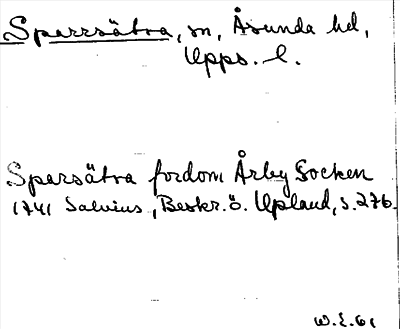 Sparrsätra, sn, Åsunda hd,
Upps. l.
Sparsätra fordom Årby Socken
1741 Salvius, Beskr. ö. Upland, s. 276.
W.E. 61